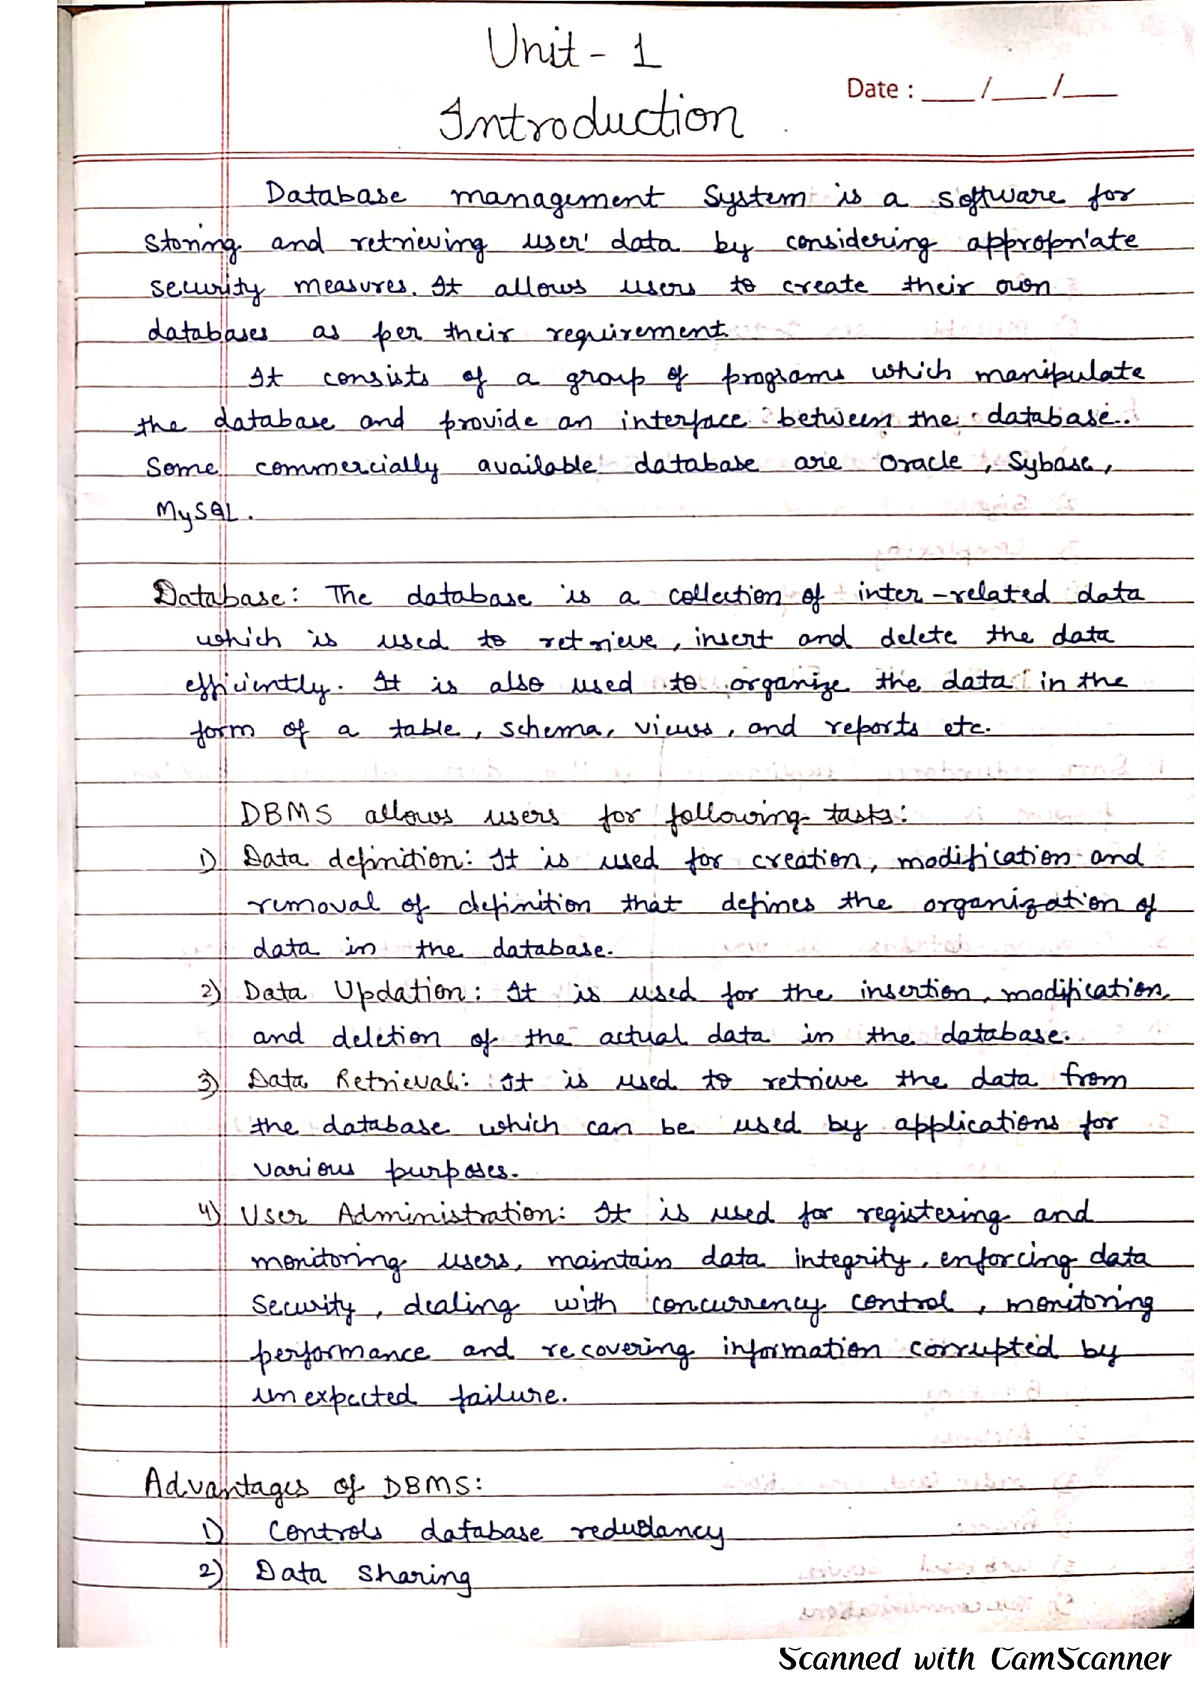 Unit - 1
Date : ___/___/___
Introduction
Database management System is a software for
storing and retrieving user' data by considering appropriate
security measures. It allows users to create their own
databases as per their requirement.
It consists of a group of programs which manipulate
the database and provide an interface between the database.
Some commercially available database are Oracle, Sybase,
MySQL.
Database: The database is a collection of inter-related data
which is used to retrieve, insert and delete the data
efficiently. It is also used to organize the data in the
form of a table, schema, views, and reports etc.
DBMS allows users for following tasks:
1) Data definition: It is used for creation, modification and
removal of definition that defines the organization of
data in the database.
2) Data Updation: It is used for the insertion, modification,
and deletion of the actual data in the database.
3) Data Retrieval: It is used to retrieve the data from
the database which can be used by applications for
various purposes.
4) User Administration: It is used for registering and
monitoring users, maintain data integrity, enforcing data
security, dealing with concurrency control, monitoring
performance and recovering information corrupted by
unexpected failure.
Advantages of DBMS:
1) Controls database redudancy
2) Data sharing
Scanned with CamScanner